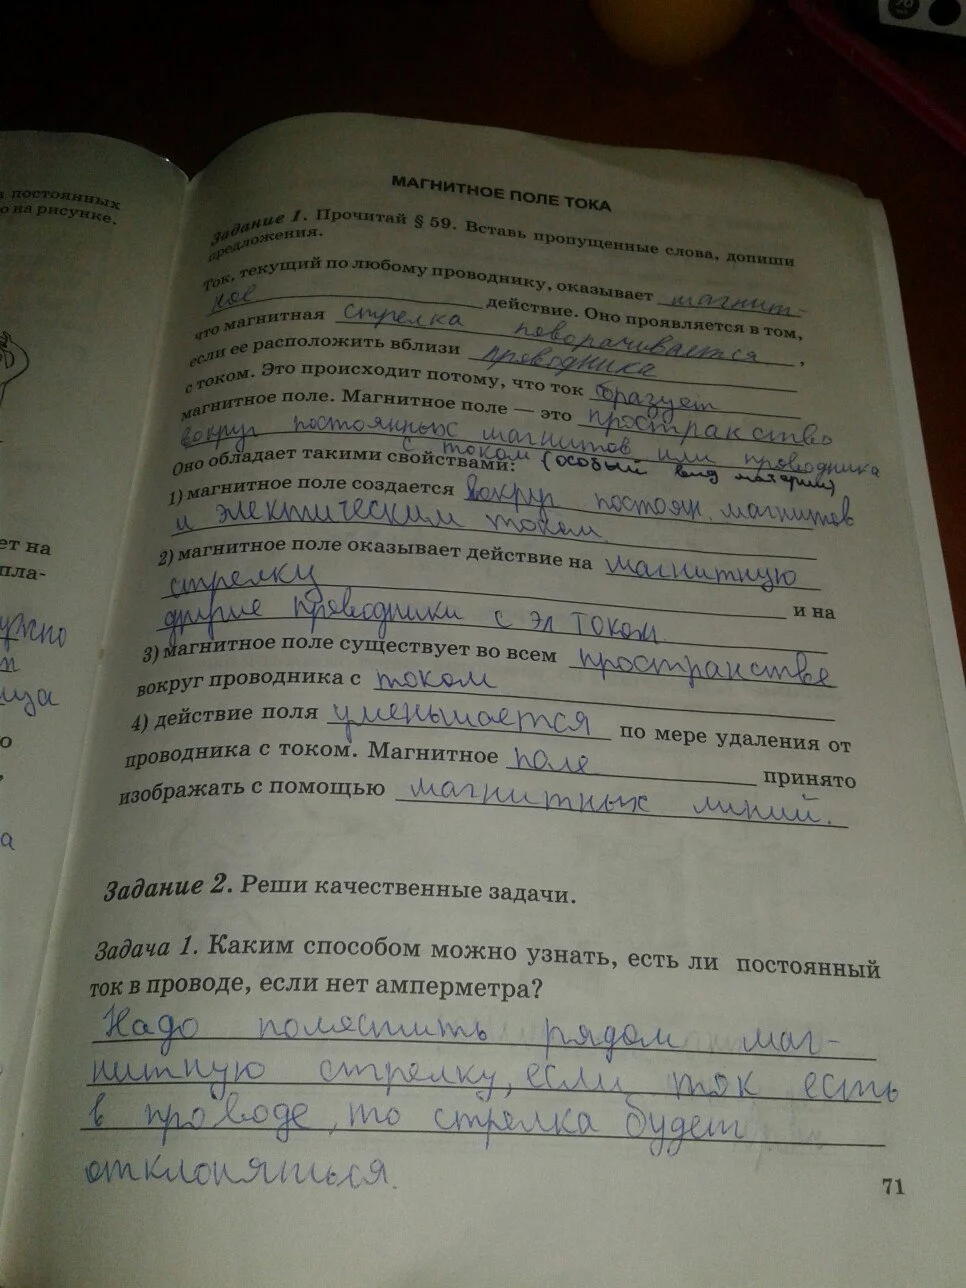 постоянных
о на рисунке.
ет на
пла-
ужно
о
а
МАГНИТНОЕ ПОЛЕ ТОКА
Задание 1. Прочитай § 59. Вставь пропущенные слова, допиши
предложения.
Ток, текущий по любому проводнику, оказывает магнит-
ное действие. Оно проявляется в том,
что магнитная стрелка поворачивается,
если ее расположить вблизи проводника
с током. Это происходит потому, что ток образует
магнитное поле. Магнитное поле — это пространство
вокруг постоянных магнитов или проводника
с током (особый вид материи)
Оно обладает такими свойствами:
1) магнитное поле создается вокруг постоян. магнитов
и электрическим током.
2) магнитное поле оказывает действие на магнитную
стрелку и на
другие проводники с эл током.
3) магнитное поле существует во всем пространстве
вокруг проводника с током
4) действие поля уменьшается по мере удаления от
проводника с током. Магнитное поле принято
изображать с помощью магнитных линий.
Задание 2. Реши качественные задачи.
Задача 1. Каким способом можно узнать, есть ли постоянный
ток в проводе, если нет амперметра?
Надо поместить рядом маг-
нитную стрелку, если ток есть
в проводе, то стрелка будет
отклоняться.
71